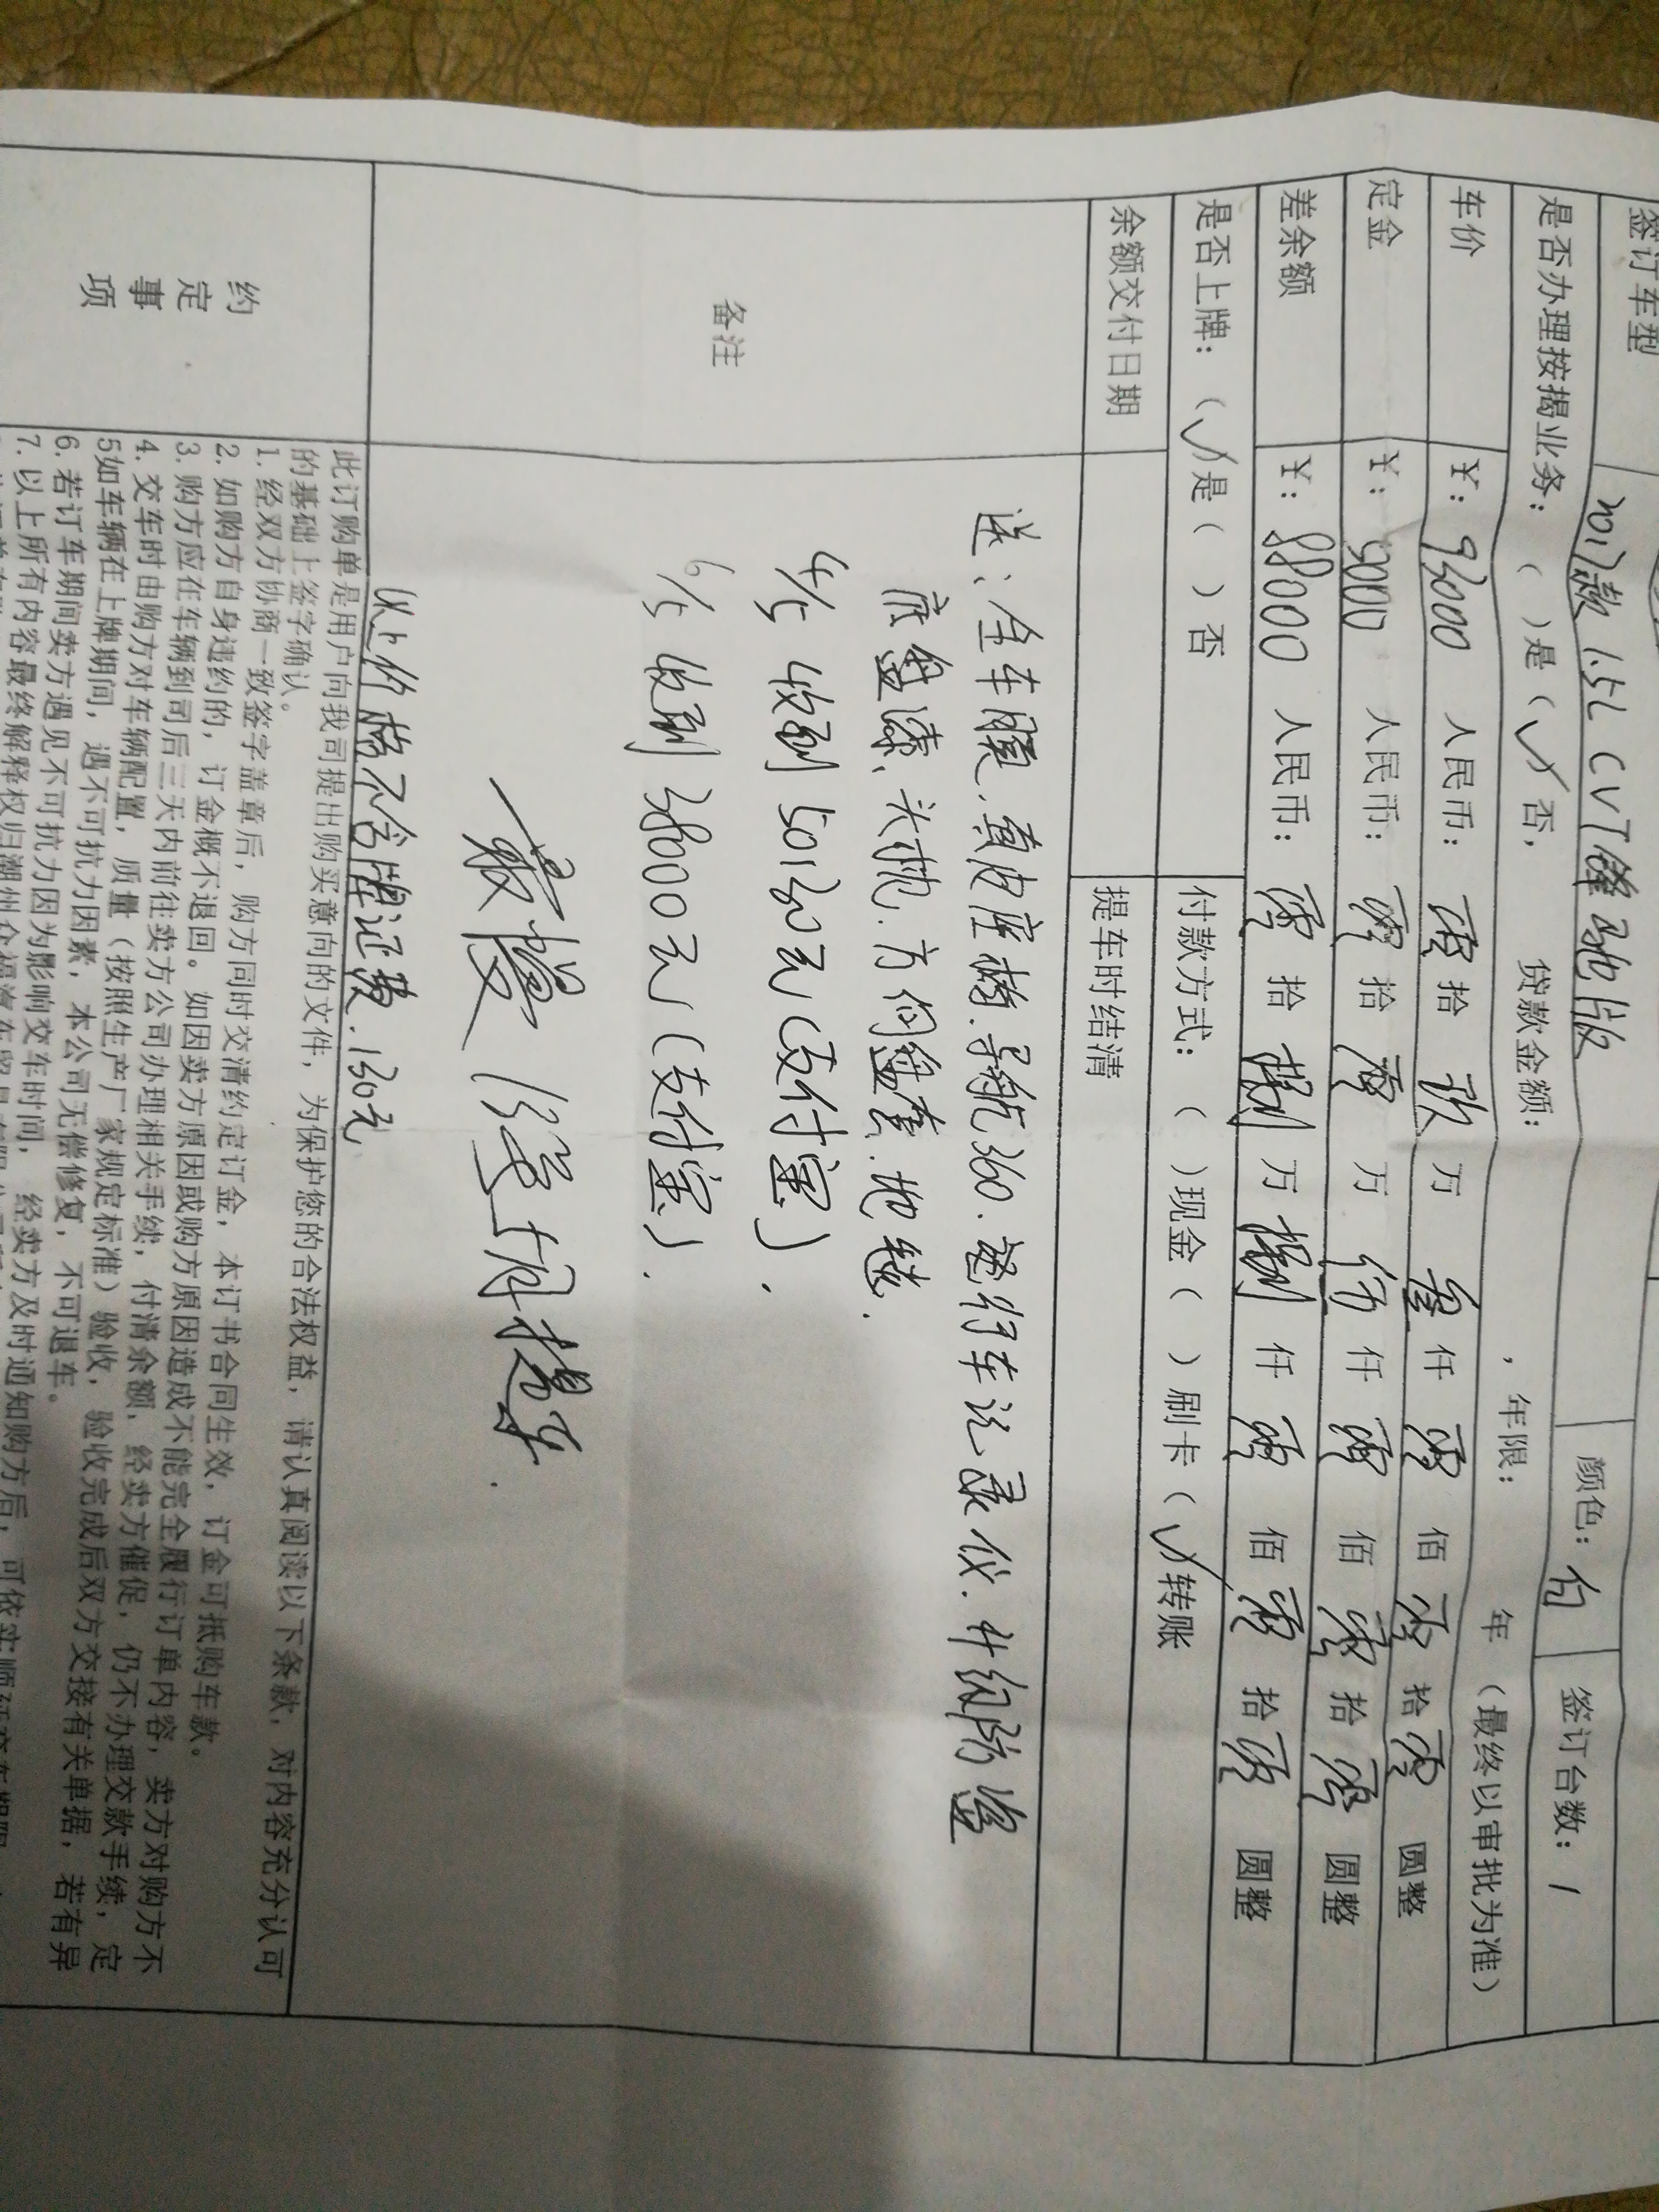 签订车型 2017款 1.5L CVT锋驰版 颜色: 白 签订台数: 1
是否办理按揭业务: ( )是(√)否, 贷款金额: , 年限: 年 (最终以审批为准)
车价 ¥: 93000 人民币: 零 拾 玖 万 叁 仟 零 佰 零 拾 零 圆整
定金 ¥: 5000 人民币: 零 拾 零 万 伍 仟 零 佰 零 拾 零 圆整
差余额 ¥: 88000 人民币: 零 拾 捌 万 捌 仟 零 佰 零 拾 零 圆整
是否上牌: (√)是( )否 付款方式: ( )现金( )刷卡(√)转账
余额交付日期 提车时结清
备注
送: 全车膜、真皮座椅、导航360、 行车记录仪、升级防盗
底盘漆、头枕、方向盘套、地毯.
4/5 收到 50130元 (支付宝).
6/5 收到 38000元 (支付宝).
以上价格不含牌证费.130元
约定事项
此订购单是用户向我司提出购买意向的文件, 为保护您的合法权益, 请认真阅读以下条款, 对内容充分认可
的基础上签字确认。
1. 经双方协商一致签字盖章后, 购方同时交清约定订金, 本订书合同生效, 订金可抵购车款。
2. 如购方自身违约的, 订金概不退回。如因卖方原因或购方原因造成不能完全履行订单内容, 卖方对购方不
3. 购方应在车辆到司后三天内前往卖方公司办理相关手续, 付清余额, 经卖方催促, 仍不办理交款手续, 定
4. 交车时由购方对车辆配置, 质量 (按照生产厂家规定标准) 验收, 验收完成后双方交接有关单据, 若有异
5如车辆在上牌期间, 遇不可抗力因素, 本公司无偿修复, 不可退车。
6. 若订车期间卖方遇见不可抗力因为影响交车时间, 经卖方及时通知购方后, 可依实顺延交车期限
7. 以上所有内容最终解释权归潮州众福汽车贸易有限公司